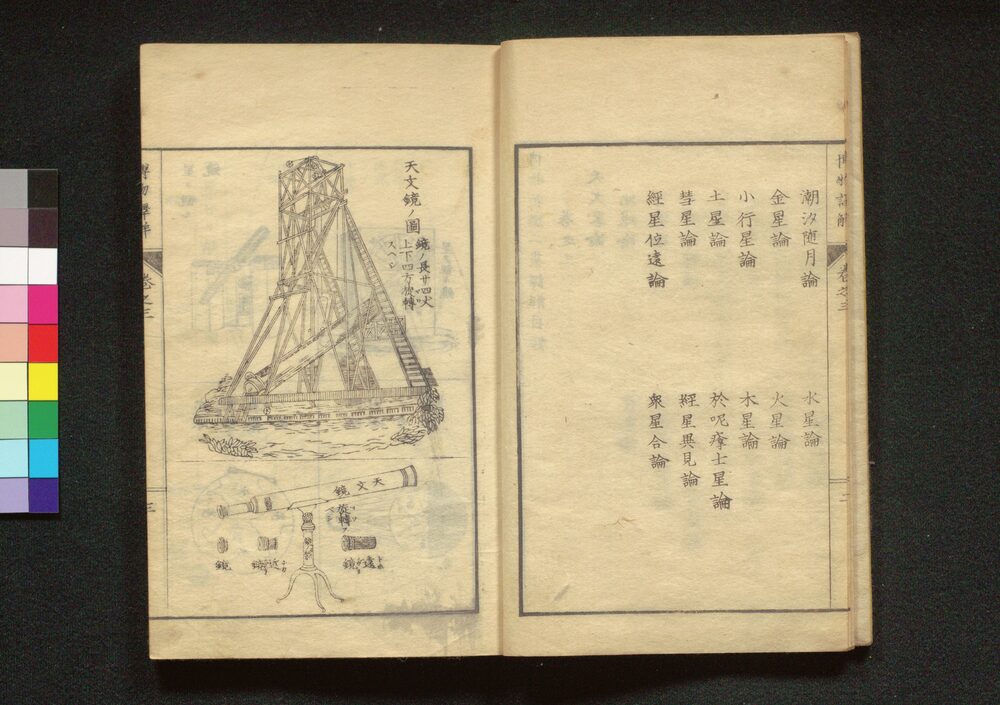 潮汐随月論
水星論
金星論
火星論
小行星論
木星論
土星論
於呢瘁士星論
彗星論
經星異見論
經星位遠論
衆星合論
卷之三
二
天文鏡ノ圖
鏡ノ長サ四丈
上下四方旋轉
スヘシ
天文鏡
旋轉
スヘシ
遠鏡
近鏡
鏡
卷之三
三